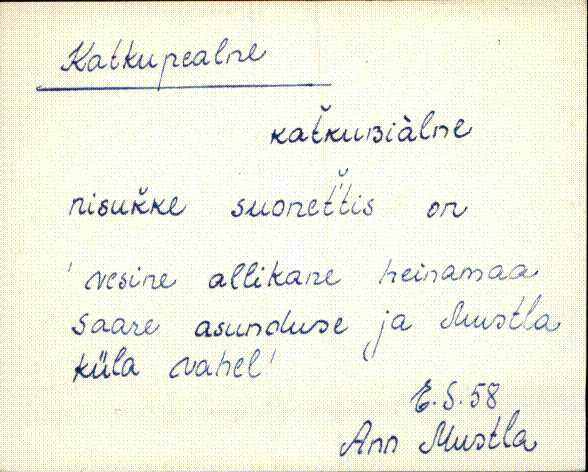 Katkupealne
katk̆uʙiàlne
nisuk̆ke suonet̆'tis on
'vesine allikane heinamaa
saare asunduse ja Mustla
küla vahel'
E.S.58
Ann Mustla